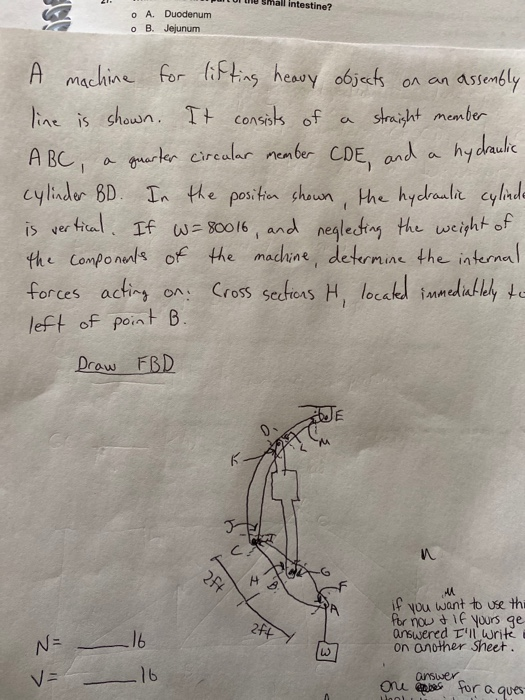 small intestine?
o A. Duodenum
o B. Jejunum
A machine for lifting heavy objects on an assembly
line is shown. It consists of a straight member
ABC, a quarter circular member CDE, and a hydraulic
cylinder BD. In the position shown, the hydraulic cylinde
is vertical. If W=800lb, and neglecting the weight of
the components of the machine, determine the internal
forces acting on: Cross sections H, located immediatlely to
left of point B.
Draw FBD
E
D
L
M
K
J
I
C
G
H
B
F
A
2ft
2ft
W
N= ___ lb
V= ___ lb
n
if you want to use thi
for now & if yours ge
answered I'll write
on another sheet.
answer
one for a ques